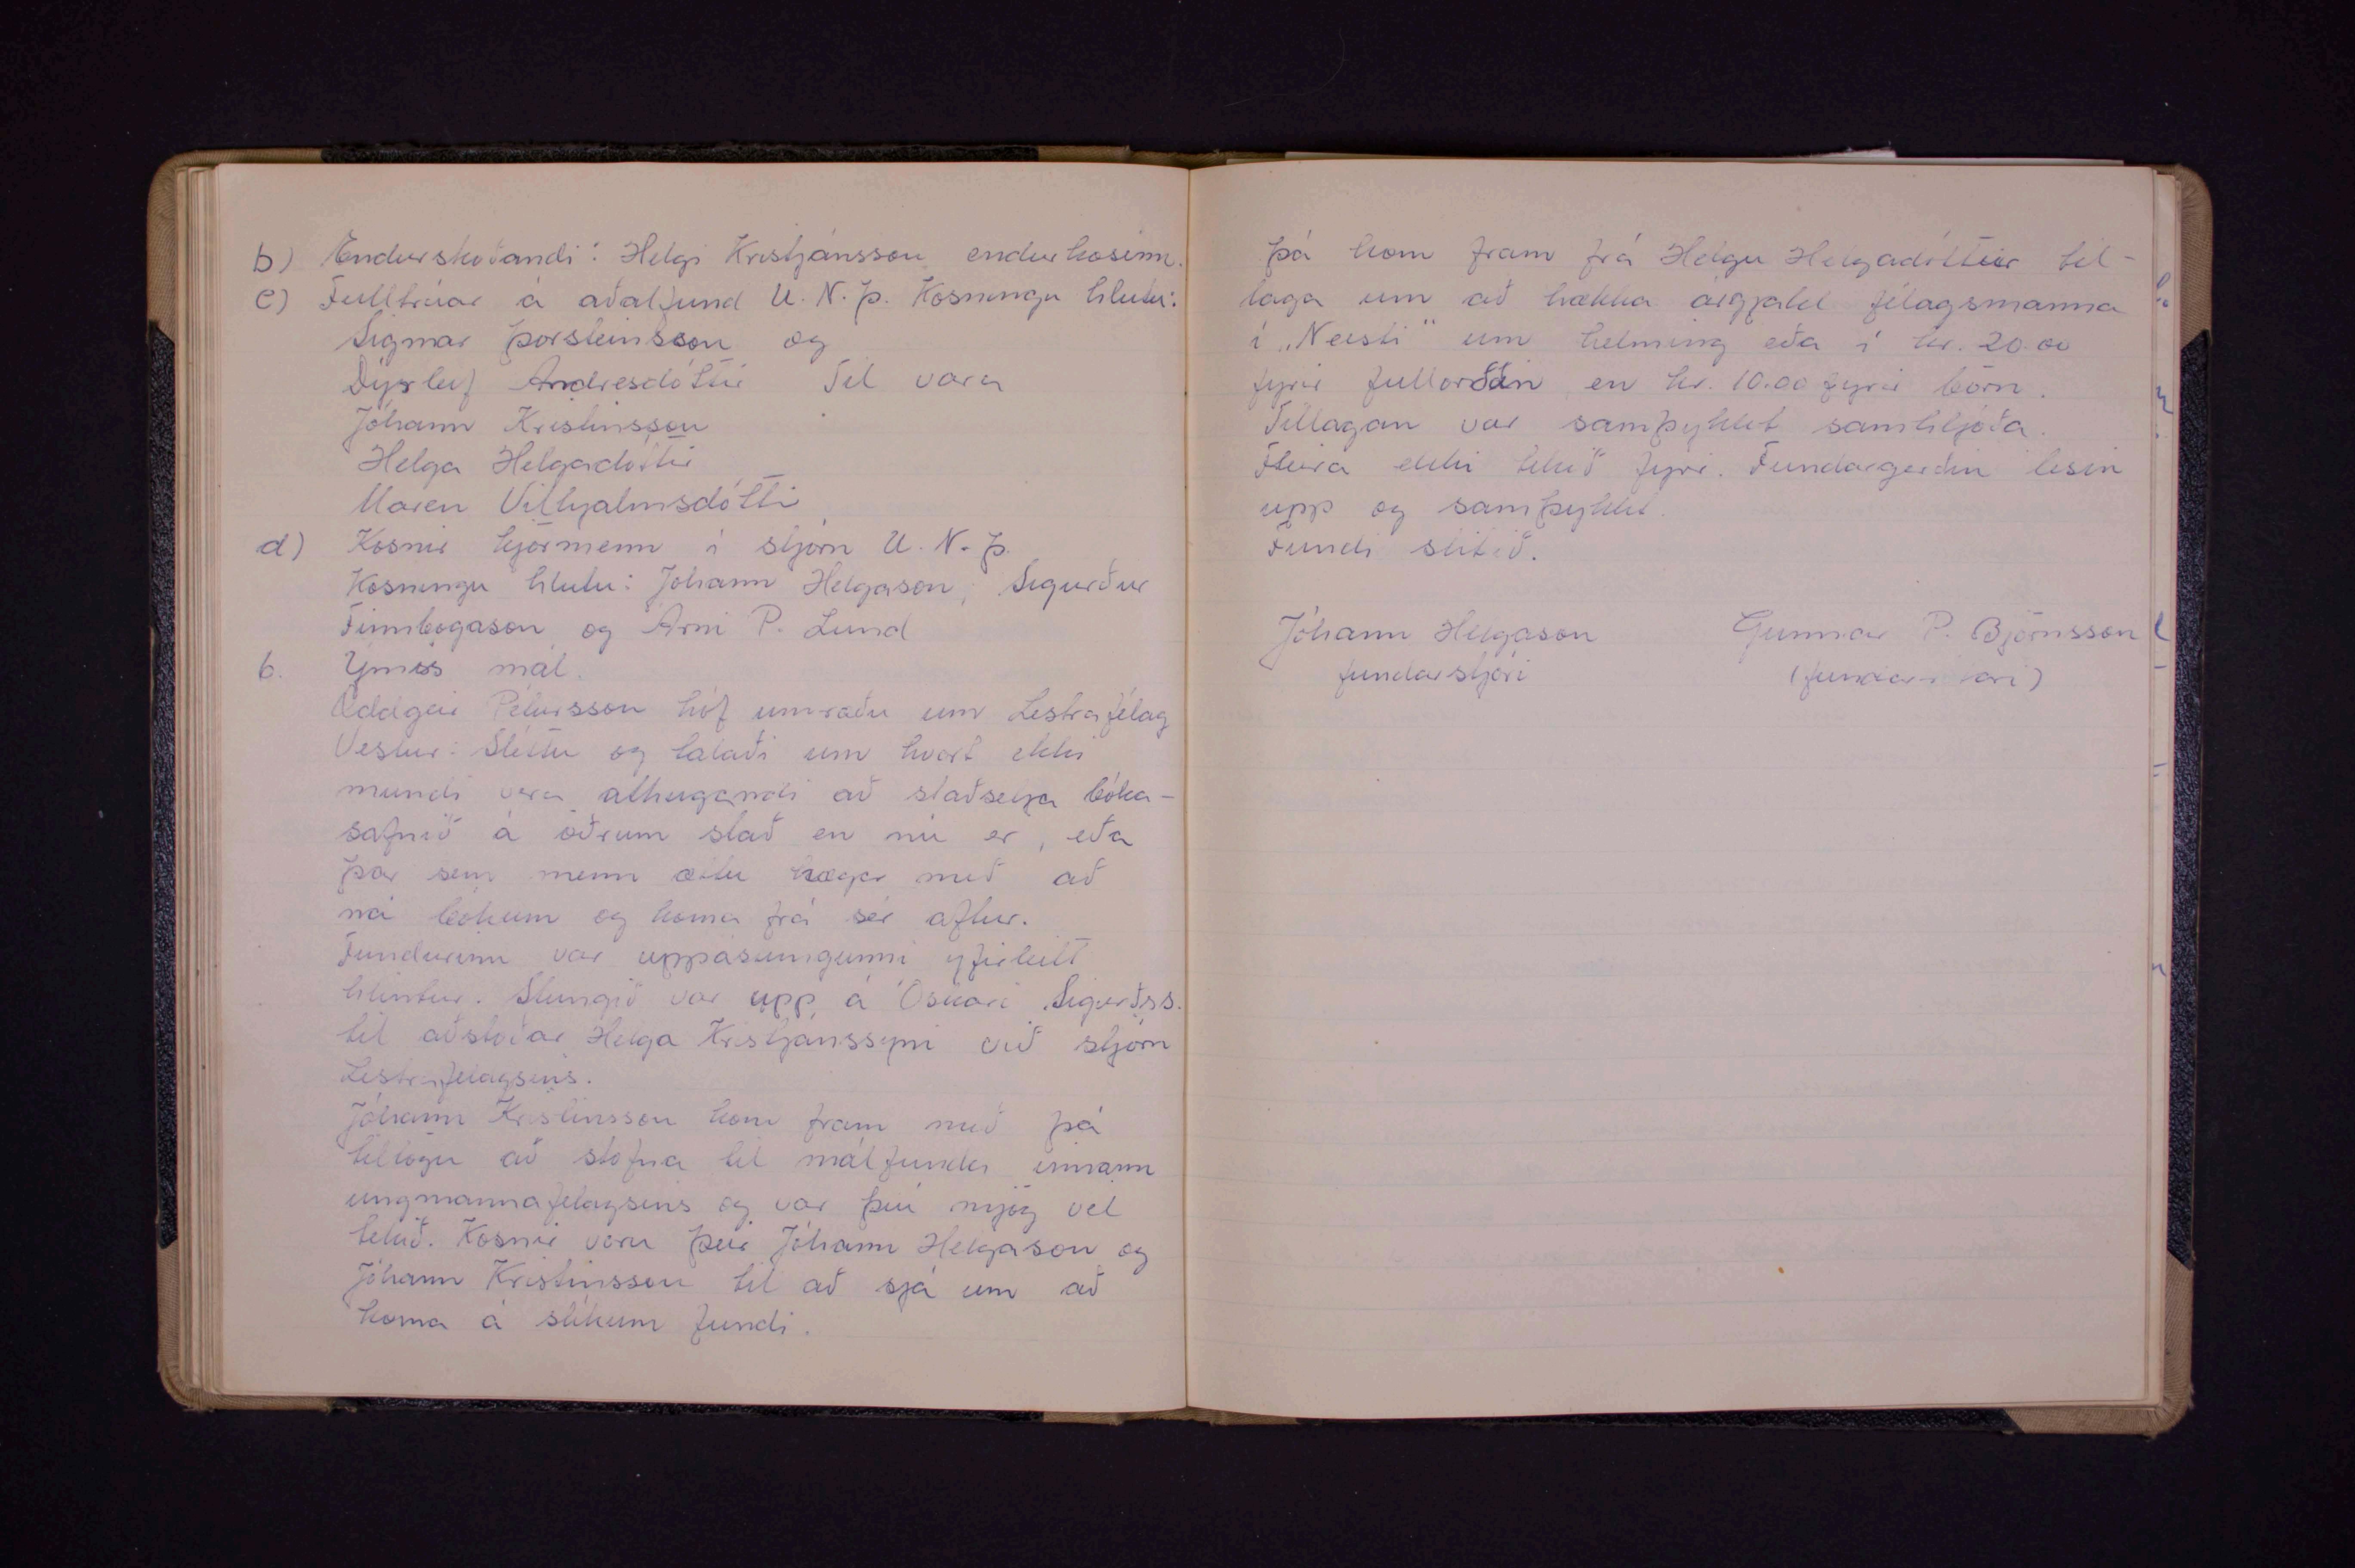 b) Endurskoðandi: Helgi Kristjánsson endurkosinn.
c) Fulltrúar á aðalfund U.N.Þ. Kosningu hlutu:
Sigmar Þorsteinsson og
Dýrleif Andresdóttir Til vara
Jóhann Kristinsson
Helga Helgadóttir
Maren Vilhjalmsdótti
d) Kosnir kjörmenn i stjórn U.N.Þ.
Kosningu hlutu: Jóhann Helgason, Sigurður
Finnbogason og Árni P. Lund
6. Ýmiss mál.
Oddgeir Pétursson hóf umræðu um Lestrafélag
Vestur-Sléttu og talaði um hvort ekki
mundi vera athugandi að staðsetja bóka-
safnið á öðrum stað en nú er, eða
þar sem menn ættu hægar með að
ná bókum og koma frá sér aftur.
Fundurinn var uppásungunni yfirleitt
hlintur. Stungið var upp á Óskari Sigurðss.
til aðstoðar Helga Kristjánssyni við stjórn
Lestrafélagsins.
Jóhann Kristinsson kom fram með þá
tillögu að stofna til málfundar innann
ungmannafelagsins og var því mjög vel
tekið. Kosnir voru þeir Jóhann Helgason og
Jóhann Kristinsson til að sjá um að
koma á slíkum fundi.
Þá kom fram frá Helgu Helgadóttur til-
laga um að hækka árgjald félagsmanna
í „Neisti" um helming eða í kr. 20.00
fyrir fullorðin en kr. 10.00 fyrir börn.
Tillagan var samþykkt samhljóða.
Fleira ekki tekið fyrir. Fundargerðin lesin
upp og samþykkt.
Fundi slitið.
Jóhann Helgason Gunnar P. Björnsson
fundarstjóri (fundarritari)